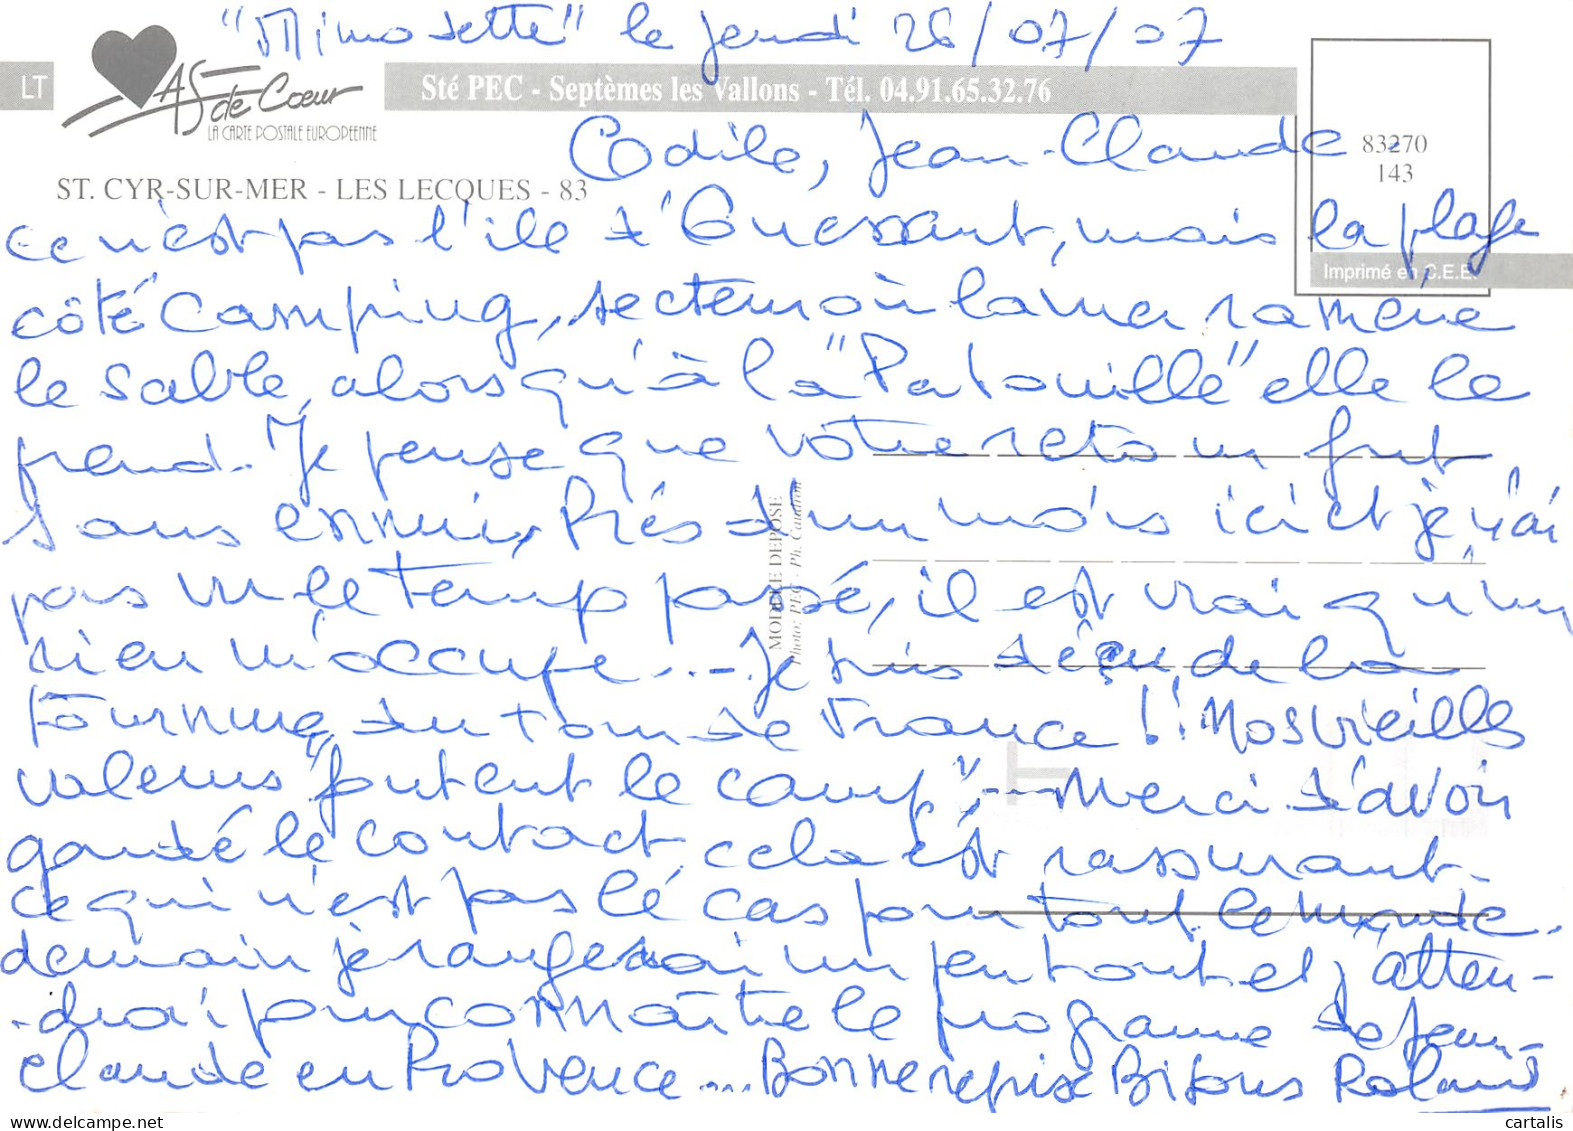 "Mimosette" le jeudi 26/07/07
LT
As de Coeur
LA CARTE POSTALE EUROPEENNE
Sté PEC - Septèmes les Vallons - Tél. 04.91.65.32.76
Odile, Jean-Claude
83270
143
ST. CYR-SUR-MER - LES LECQUES - 83
ce n'est pas l'ile d'Ouessant, mais la plage
Imprimé en C.E.E.
côté Camping, secteur où la mer ramène
le sable, alors qu'à la "Patouille" elle le
prend. Je pense que votre retour fut
sans ennui, Près d'un mois ici et je n'ai
pas vu le temps passé, il est vrai qu'un
rien m'occupe... Je suis déçu de la
tournure du tour de France !! Nos vieilles
valeurs "foutent le camp"... Merci d'avoir
gardé le contact, cela est rassurant
ce qui n'est pas le cas pour tout le monde.
demain je rangerai un peu tout et j'atten-
-drai pour connaître le programme de Jean-
Claude en Provence... Bonne reprise Bisous Roland
MODELE DEPOSE
Photo: PEC - Ph.
cartalis
cartalis.com